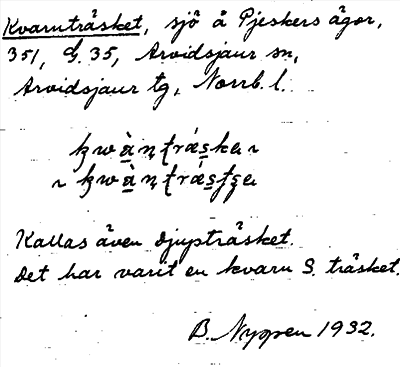 Kvarnträsket, sjö å Pjeskers ägor,
351, G. 35, Arvidsjaur sn,
Arvidsjaur tg, Norrb. l.
Kallas även Djupträsket.
Det har varit en kvarn S. träsket.
B. Nygren 1932.